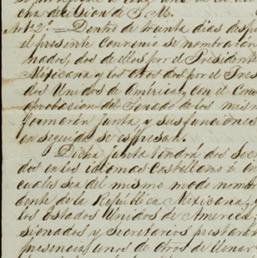 cha decision de S. M.
Art. 2º = Dentro de treinta dias desp
el presente Convenio se nombraran
nados, dos de ellos por el Presidente
Mexicana y los otros dos por el Pres
dos Unidos de America, con el Con
aprobacion del Senado de los mism
formarán junta y sus funciones
en seguida se espresan.
Dicha junta tendrá dos Secre
dos en los idiomas Castellano é in
cuales sea del mismo modo nombra
dente de la República Mexicana, y
los Estados Unidos de America,
sionados y Secretarios prestarán
presencia unos de otros de llenar